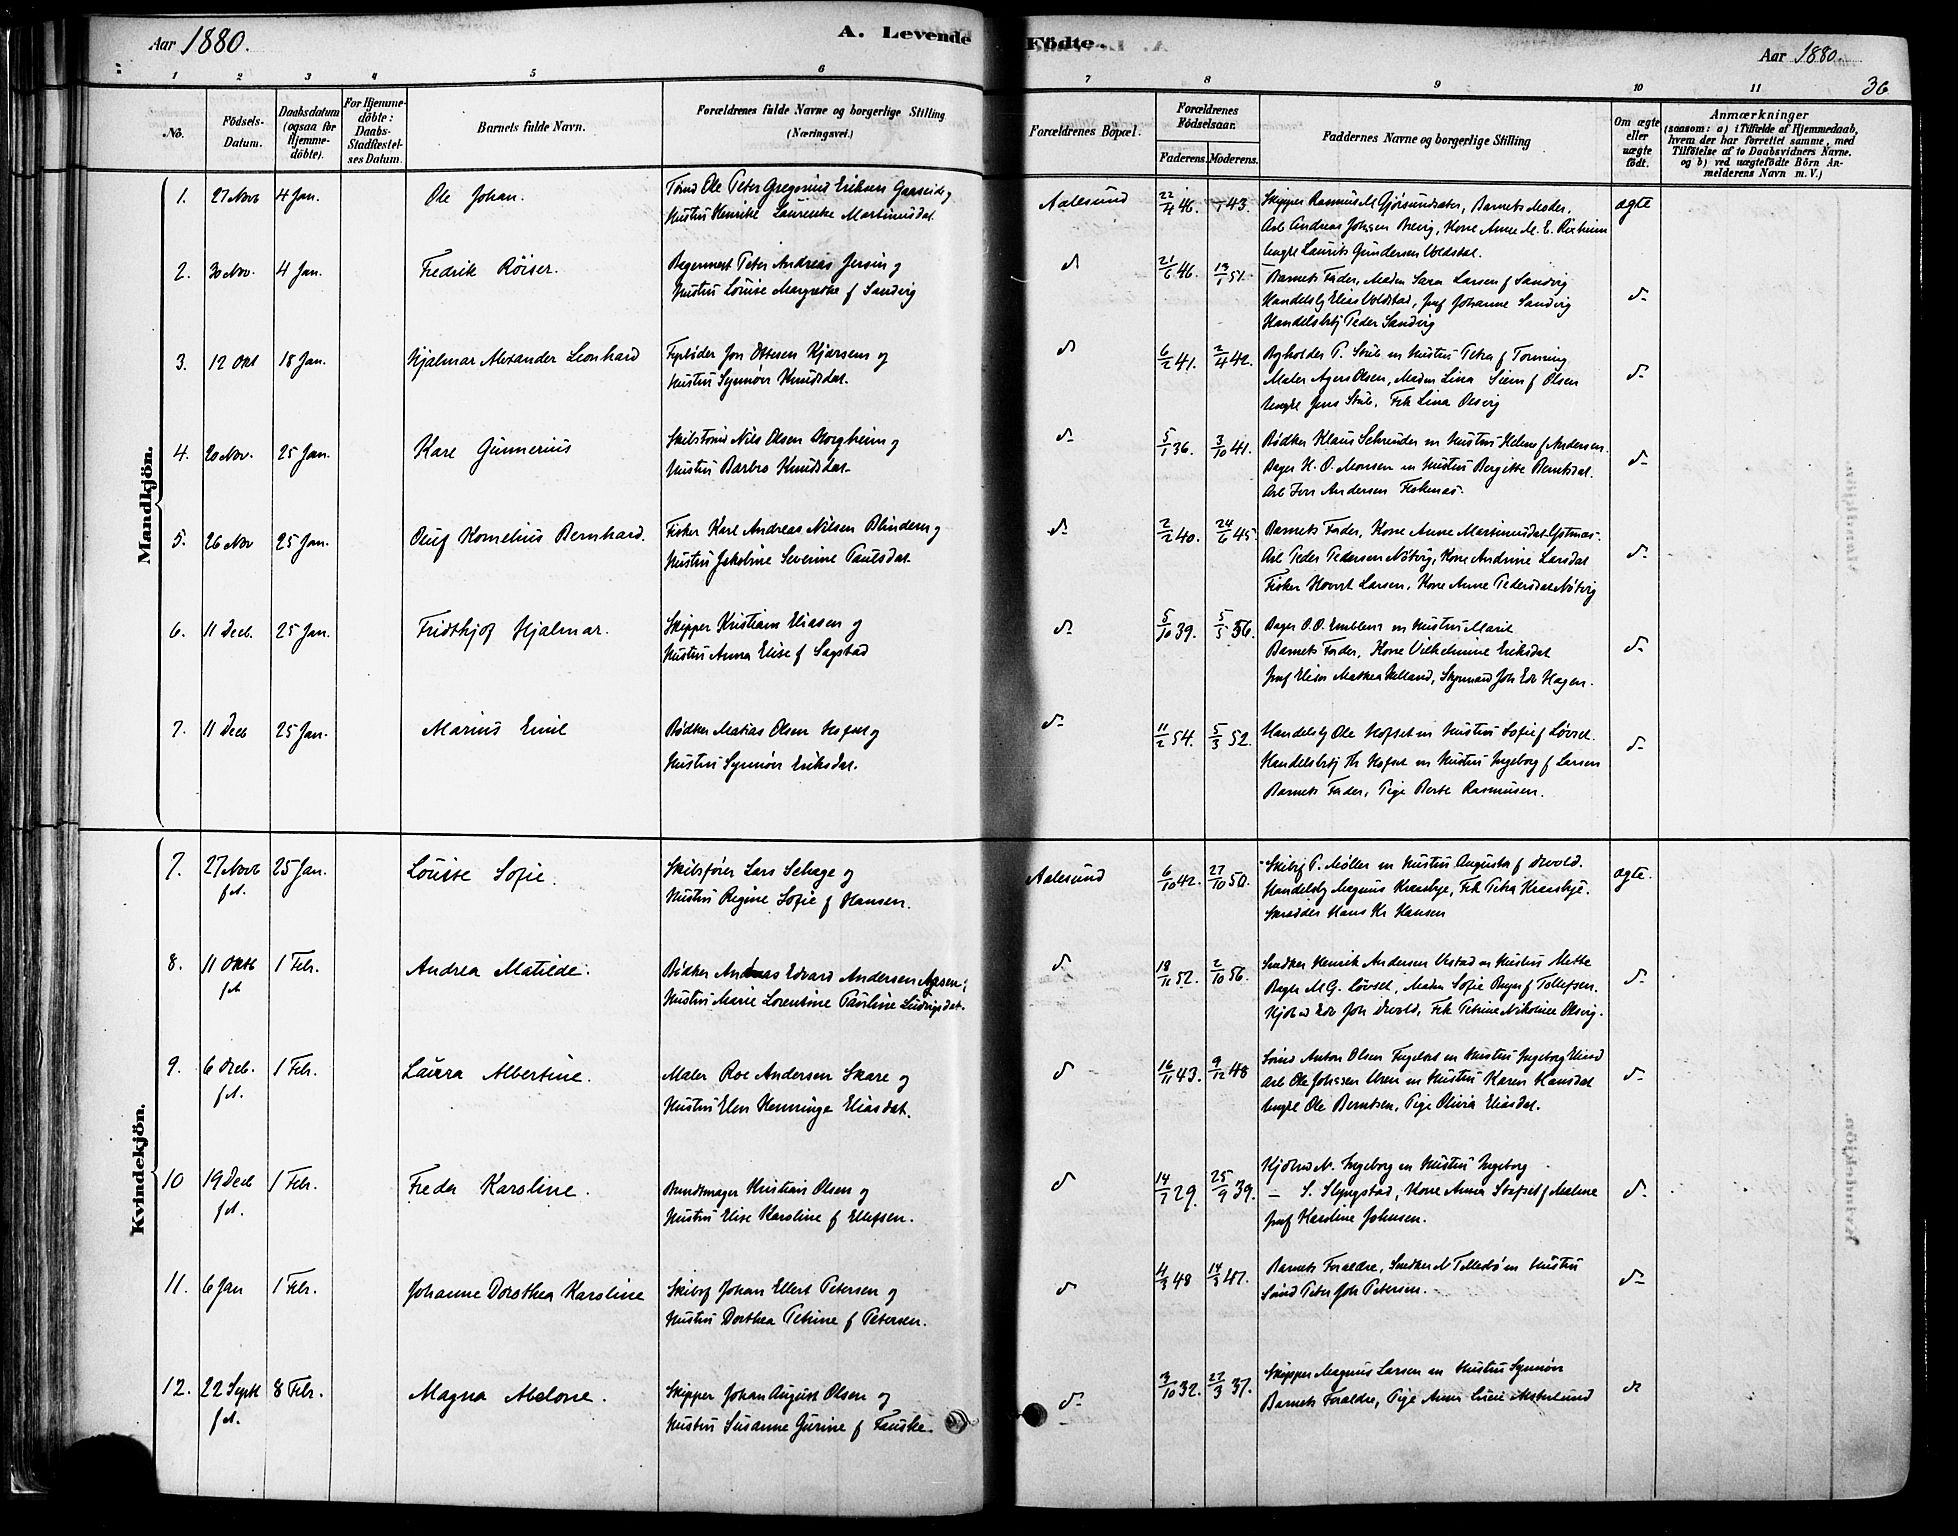 Aar 1880.
A. Levende Födte.
Aar 1880.
36
1 2 3 4 5 6 7 8 9 10 11
No.
Födsels-Datum.
Daabsdatum (ogsaa for Hjemme-döbte).
For Hjemme-döbte: Daabs-Stadfæstel-ses Datum.
Barnets fulde Navn.
Forældrenes fulde Navne og borgerlige Stilling
(Næringsvei.)
Forældrenes Bopæl.
Forældrenes Födselsaar.
Faderens. Moderens.
Faddernes Navne og borgerlige Stilling
Om ægte eller uægte födt.
Anmærkninger
(saasom: a) i Tilfælde af Hjemmedaab,
hvem der har forrettet samme, med
Tilföielse af to Daabsvidners Navne.
og b) ved uægtefödte Börn An-
melderens Navn m. V.)
Mandkjön.
1. 27 Novb 4 Jan. Ole Johan.
Ole Peter Eriksen
Hustru Henrike Laurentze Martinusdat.
Aalesund 22/4 46. 43.
Skipper Rasmus M Gjörsundsæter, Barnets Moder,
Arb Andreas Johsen Brevig, Kone Anne M. E. Rixheim
Ungkl Laurits Gundersen Voldsdal.
ægte
2. 30 Nov. 4 Jan. Fredrik Röiser.
Peter Andreas Jersin og
Hustru Louise Margrethe f Sandvig
d 21/6 46. 13/1 51.
Barnets Fader, Madm Sara Larsen f Sandvig
Handelsb Elias Voldstad, Jmf Johanne Sandvig
Handelsbtj Peder Sandvig
d-
3. 12 Okt 18 Jan. Hjalmar Alexander Leonhard
Fyrböder Jon Ottesen og
Hustru Synnöv Knudsdat.
d 6/2 41. 2/4 42.
P. Stub m Hustru Petra f Tonning
Maler Olsen, Madm Lina Siem f Olsen
Ungkl Jens Stub, Frk Lina Olsvig
d-
4. 20 Nov. 25 Jan. Kare Gunnerius
Nils Olsen Horgheim og
Hustru Barbro Knudsdat.
d- 5/1 36. 3/10 41.
Bödker Klaus Schreuder m Hustru Helene f Andersen.
Bager H. O. Monsen m Hustru Bergitte Berntsdat.
Arb Iver Andersen Fiskenæs.
d-
5. 26 Nov 25 Jan. Oluf Kornelius Bernhard.
Fisker Karl Andreas Nilsen Blindem og
Hustru Jakobine Severine Paulsdat.
d- 2/2 40. 24/6 45
Barnets Fader, Kone Anne Martinusdat
Arb Peder Pedersen Nötvig, Kone Andrine Larsdat
Fisker Larsen, Kone Anne Pedersdat Nötvig
d-
6. 11 Decb. 25 Jan. Fridthjof Hjalmar.
Skipper Kristian Eliasen og
Hustru Anna Elise f Sagstad
d- 5/10 39. 5/5 56.
Bager O. O. Emblem m Hustru Marie
Barnets Fader, Kone Vilhelmine Eriksdat
Jmf Mathea, Joh Edv Hagen.
d-
7. 11 Decb 25 Jan. Marius Emil
Bödker Matias Olsen og
Hustru Synnöv Eriksdat.
d- 11/2 54. 5/3 52.
Handelsb Ole Hofset m Hustru Sofie f Lövset.
Handelsbtj Hofset m Hustru Ingeborg f Larsen
Barnets Fader, Pige Berte Rasmusen.
d-
Kvindekjön.
7. 27 Novb 25 Jan. Louise Sofie.
f.A.
Skibsförer Lars Selvage og
Hustru Regine Sofie f Hansen.
Aalesund 6/10 42. 27/10 50.
Skibsf P. Möller m Hustru Augusta f Devold.
Handelsb Magnus, Frk Petra
Skredder Hans Kr Hansen
ægte.
8. 11 Oktb 1 Febr. Andrea Matilde.
f.A
Bödker Andreas Edvard Andersen Aasen og
Hustru Marie Lorentine Pauline Ludvigsdat.
d 18/11 52. 2/10 56.
Snedker Henrik Andersen m Hustru Mette
M G. Lövset, Madm Sofie f Tollefsen.
Edv Joh Devold, Frk Petrine Nikoline Olsvig.
d-
9. 6 Decb. 1 Febr. Laura Albertine.
f.A.
Maler Roe Andersen Skare og
Hustru Elen Henninge Eliasdat.
d 16/11 43. 9/12 48
Anton Olsen m Hustru Ingeborg
Arb Ole Johnsen m Hustru Karen Hansdat
Ungkl Ole Berntsen, Pige Olivia Eliasdat.
d-
10 19 Decb 1 Febr. Freda Karoline.
f.A.
Buntmager Kristian Olsen og
Hustru Elise Karoline f Ellefsen.
d 14/1 29. 25/9 39.
m Hustru Ingeborg
— S. Slyngstad, Kone Anna
Jmf Karoline Johnsen.
d-
11. 6 Jan 1 Febr. Johanne Dorothea Karoline
Skibsf Johan Ellert Petersen og
Hustru Dorthea Petrine f Petersen.
d 4/3 48 14/3 47.
Barnets Foraldre, Snedker m Hustru
Peter Joh Petersen.
d-
12. 22 Septb 8 Febr. Magna Malone.
f.A.
Skipper Johan August Olsen og
Hustru Susanne Gurine f Fauske.
d- 3/10 32. 27/3 37.
Skipper Magnus Larsen m Hustru Synnöv
Barnets Foraldre, Pige Anna
d-